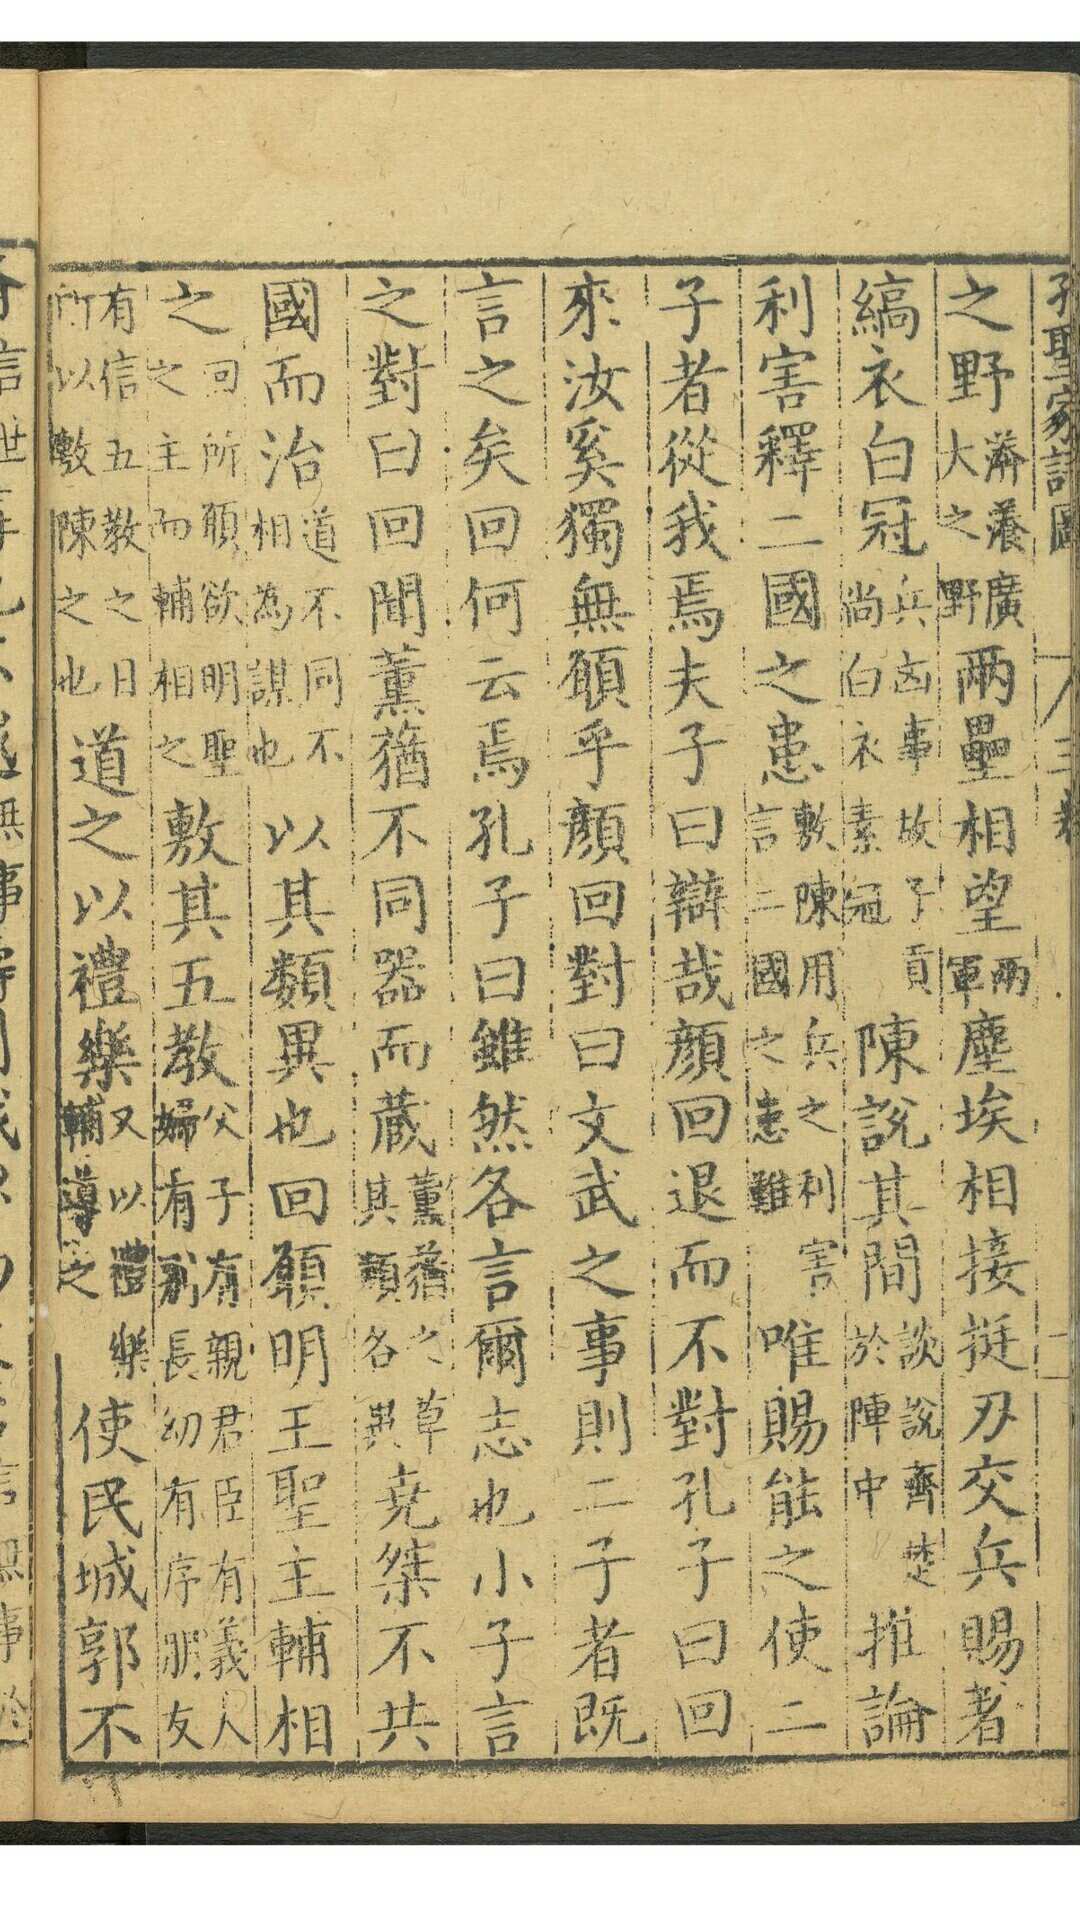 之野漭瀁廣大之野兩壘相望兩軍塵埃相接挺刃交兵賜著
縞衣白冠兵凶事故子貢尚白衣素冠陳說其間談說齊楚於陣中推論
利害釋二國之患敷陳用兵之利害言二國之患難唯賜能之使二
子者從我焉夫子曰辯哉顏回退而不對孔子曰回
來汝奚獨無願乎顏回對曰文武之事則二子者既
言之矣回何云焉孔子曰雖然各言爾志也小子言
之對曰回聞薰蕕不同器而藏薰蕕之草其類各異堯桀不共
國而治道不同不相為謀也以其類異也回願明王聖主輔相
之回所願欲明聖之主而輔相之敷其五教父子有親君臣有義人婦有別長幼有序朋友
有信五教之日所以敷陳之也道之以禮樂又以禮樂輔導之使民城郭不